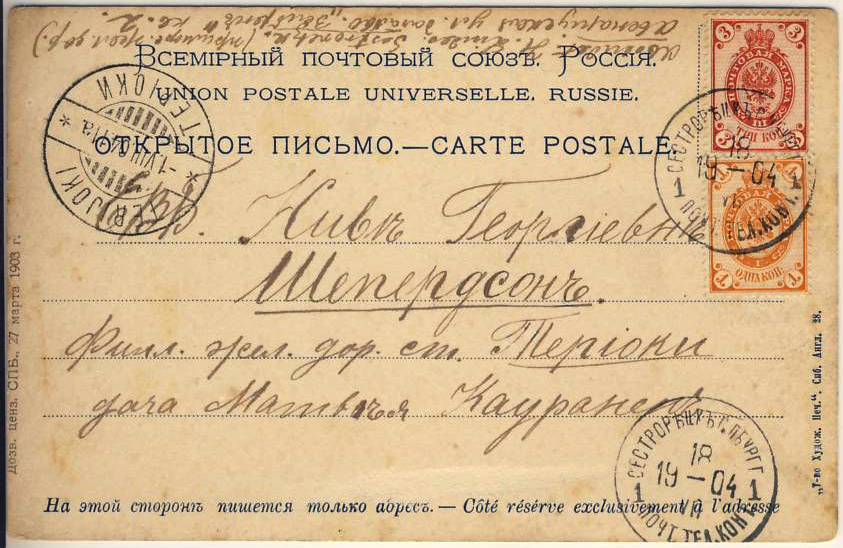 Всемірный почтовый союзъ. Россія.
UNION POSTALE UNIVERSELLE. RUSSIE.
ОТКРЫТОЕ ПИСЬМО.—CARTE POSTALE.
Георгіевнѣ
Шепердсонъ.
Финл. жел. дор. ст. Теріоки
дача Матвѣя Каураненъ
На этой сторонѣ пишется только адресъ. — Côté réservé exclusivement à l'adresse
Дозв. ценз. СПБ., 27 марта 1903 г.
„Т-во Худож. Печ.“ Спб. Англ. 28.
3 3
ПОЧТОВАЯ МАРКА
ТРИ КОП.
1 1
ОДНА КОП.
1 1
TERIJOKI
TERIJOKI
СЕСТРОРѢЦКЪ
18
19—04
1 1
ПОЧТ. ТЕЛ. КОН.
СЕСТРОРѢЦКЪ С. ПБУРГ. Г.
18
19—04
VII
1 1
ПОЧТ. ТЕЛ. КОН.